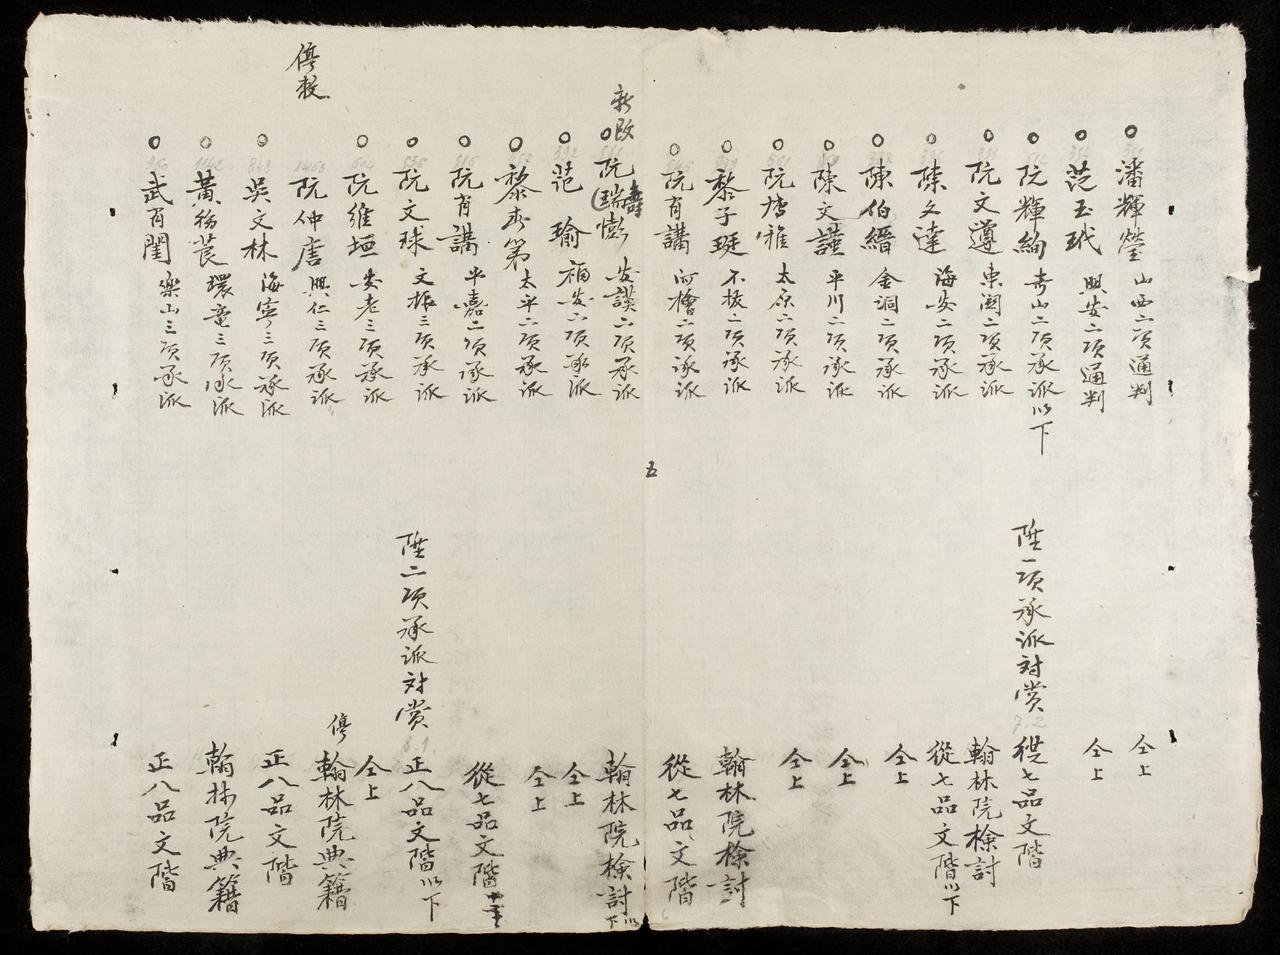 潘輝瑩 山西二項通判 仝上
范玉玳 興安二項通判 仝上
阮輝絢 壽山二項承派以下 陞一項承派対賞 從七品文階
阮文遵 東關二項承派 翰林院檢討
陳文達 海安二項承派 從七品文階以下
陳伯縉 金洞二項承派 仝上
陳文謹 平川二項承派 仝上
阮唐雅 太原二項承派 仝上
黎子珽 不拔二項承派 翰林院檢討
阮有講 二項承派 從七品文階
新改
阮瑞 安謨二項承派 翰林院檢討以下
范瑜 福安二項承派 仝上
黎春第 太平二項承派 仝上
阮有講 平嘉二項承派 從七品文階
阮文球 文振三項承派 陞二項承派対賞 正八品文階以下
阮維垣 安老三項承派 仝上
停教
阮仲唐 興仁三項承派 停 翰林院典籍
吳文林 海寧三項承派 正八品文階
黃 環竜三項承派 翰林院典籍
武有閨 樂山三項承派 正八品文階
五